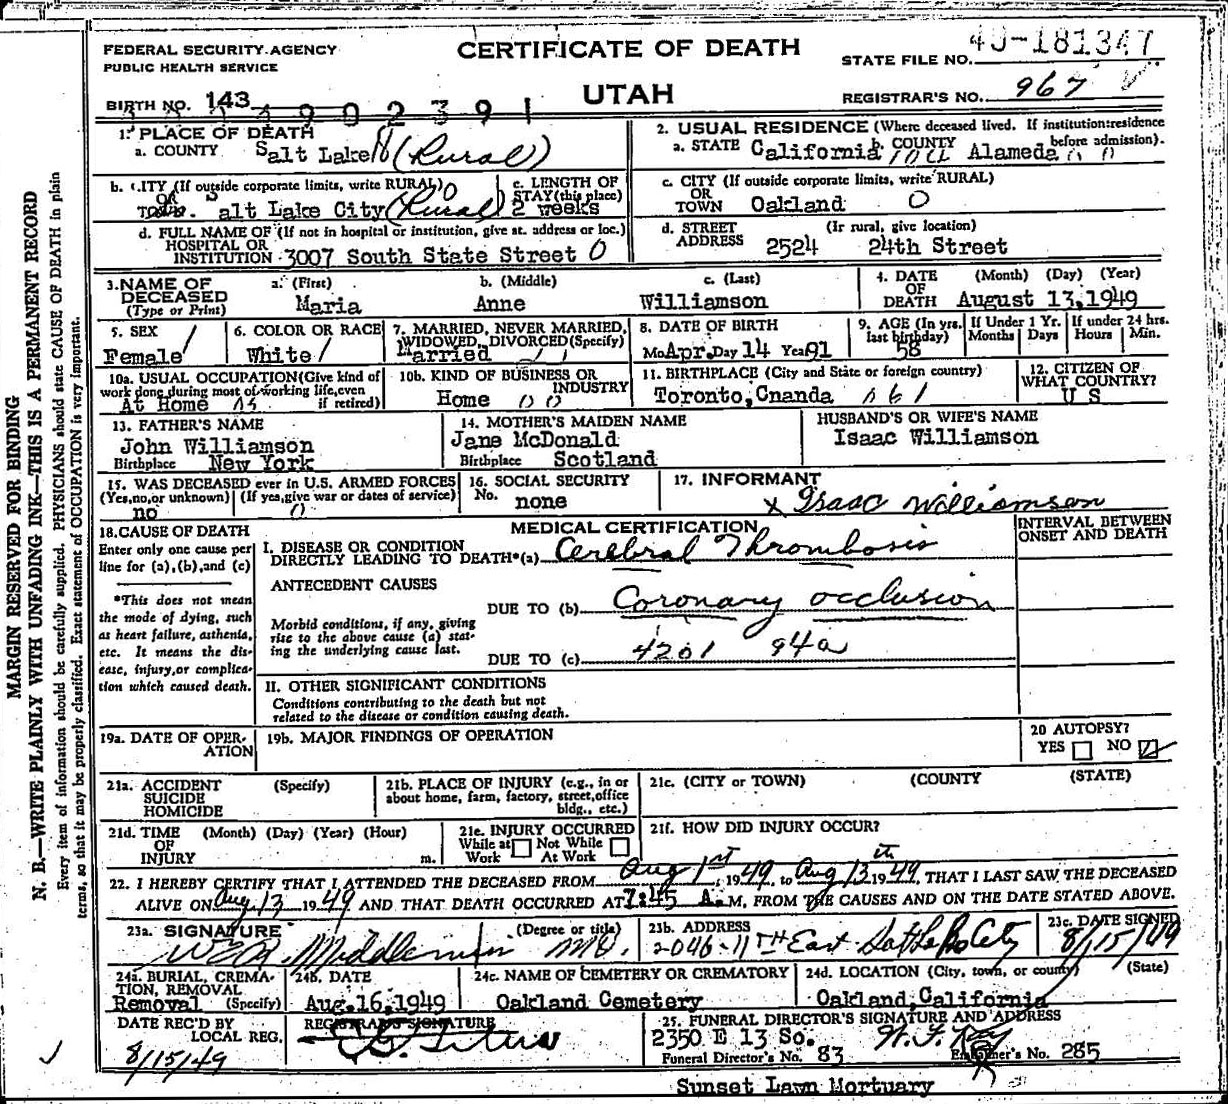 FEDERAL SECURITY AGENCY
PUBLIC HEALTH SERVICE
CERTIFICATE OF DEATH
UTAH
STATE FILE NO. 49-181347
REGISTRAR'S NO. 967
BIRTH NO. 143
1. PLACE OF DEATH
a. COUNTY Salt Lake (Rural)
b. CITY (If outside corporate limits, write RURAL)
OR
Town. Salt Lake City (Rural)
c. LENGTH OF
STAY (this place)
2 weeks
d. FULL NAME OF (If not in hospital or institution, give st. address or loc.)
HOSPITAL OR
INSTITUTION 3007 South State Street O
2. USUAL RESIDENCE (Where deceased lived. If institution:residence
before admission).
a. STATE California b. COUNTY Alameda
c. CITY (If outside corporate limits, write RURAL)
OR
TOWN Oakland O
d. STREET (If rural, give location)
ADDRESS 2524 24th Street
3. NAME OF
DECEASED
(Type or Print)
a. (First) b. (Middle) c. (Last)
Maria Anne Williamson
4. DATE (Month) (Day) (Year)
OF
DEATH August 13, 1949
5. SEX
Female
6. COLOR OR RACE
White
7. MARRIED, NEVER MARRIED,
WIDOWED, DIVORCED (Specify)
Married
8. DATE OF BIRTH
Mo. Apr. Day 14 Year 91
9. AGE (In yrs.
last birthday)
58
If Under 1 Yr.
Months Days
If under 24 hrs.
Hours Min.
10a. USUAL OCCUPATION (Give kind of
work done during most of working life, even
if retired)
At Home
10b. KIND OF BUSINESS OR
INDUSTRY
Home
11. BIRTHPLACE (City and State or foreign country)
Toronto, Cnanda
12. CITIZEN OF
WHAT COUNTRY?
U S
13. FATHER'S NAME
John Williamson
Birthplace New York
14. MOTHER'S MAIDEN NAME
Jane McDonald
Birthplace Scotland
HUSBAND'S OR WIFE'S NAME
Isaac Williamson
15. WAS DECEASED ever in U.S. ARMED FORCES
(Yes, no, or unknown) (If yes, give war or dates of service)
no O
16. SOCIAL SECURITY
No. none
17. INFORMANT
x Isaac Williamson
18. CAUSE OF DEATH
Enter only one cause per
line for (a), (b), and (c)
*This does not mean
the mode of dying, such
as heart failure, asthenia,
etc. It means the dis-
ease, injury, or complica-
tion which caused death.
MEDICAL CERTIFICATION
INTERVAL BETWEEN
ONSET AND DEATH
I. DISEASE OR CONDITION
DIRECTLY LEADING TO DEATH*(a) Cerebral Thrombosis
ANTECEDENT CAUSES
DUE TO (b) Coronary occlusion
Morbid conditions, if any, giving
rise to the above cause (a) stat-
ing the underlying cause last.
DUE TO (c) 4201 94a
II. OTHER SIGNIFICANT CONDITIONS
Conditions contributing to the death but not
related to the disease or condition causing death.
19a. DATE OF OPER-
ATION
19b. MAJOR FINDINGS OF OPERATION
20 AUTOPSY?
YES NO
21a. ACCIDENT (Specify)
SUICIDE
HOMICIDE
21b. PLACE OF INJURY (e.g., in or
about home, farm, factory, street, office
bldg., etc.)
21c. (CITY or TOWN) (COUNTY) (STATE)
21d. TIME (Month) (Day) (Year) (Hour)
OF
INJURY m.
21e. INJURY OCCURRED
While at Not While
Work At Work
21f. HOW DID INJURY OCCUR?
22. I HEREBY CERTIFY THAT I ATTENDED THE DECEASED FROM Aug 1st, 1949, to Aug 13th 1949, THAT I LAST SAW THE DECEASED
ALIVE ON Aug 13 1949 AND THAT DEATH OCCURRED AT 7:45 A.M, FROM THE CAUSES AND ON THE DATE STATED ABOVE.
23a. SIGNATURE (Degree or title)
Middlemiss MD.
23b. ADDRESS
2046-11TH East Salt Lake City
23c. DATE SIGNED
8/15/49
24a. BURIAL, CREMA-
TION, REMOVAL
Removal (Specify)
24b. DATE
Aug. 16, 1949
24c. NAME OF CEMETERY OR CREMATORY
Oakland Cemetery
24d. LOCATION (City, town, or county) (State)
Oakland, California
DATE REC'D BY
LOCAL REG.
8/15/49
REGISTRAR'S SIGNATURE
25. FUNERAL DIRECTOR'S SIGNATURE AND ADDRESS
2350 E 13 So.
Funeral Director's No. 83 Embalmer's No. 285
Sunset Lawn Mortuary
MARGIN RESERVED FOR BINDING
N. B.—WRITE PLAINLY WITH UNFADING INK—THIS IS A PERMANENT RECORD
Every item of information should be carefully supplied. PHYSICIANS should state CAUSE OF DEATH in plain
terms, so that it may be properly classified. Exact statement of OCCUPATION is very important.